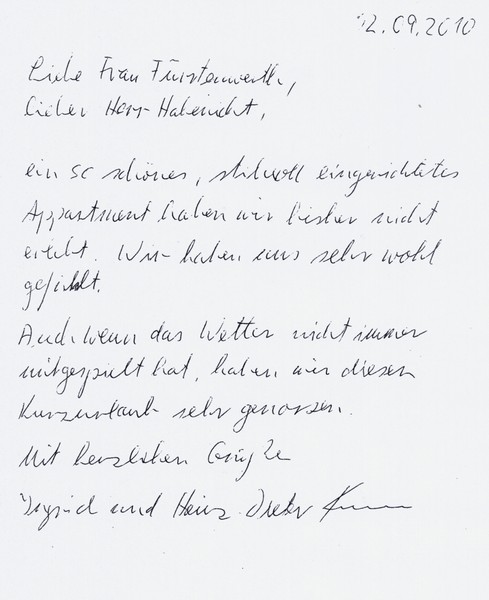 12.09.2010
Liebe Frau Fürstenwerth,
lieber Herr Habenicht,
ein so schönes, stilvoll eingerichtetes
Appartment haben wir bisher nicht
erlebt. Wir haben uns sehr wohl
gefühlt.
Auch wenn das Wetter nicht immer
mitgespielt hat, haben wir diesen
Kurzurlaub sehr genossen.
Mit herzlichen Grüße
Ingrid und Heinz-Dieter